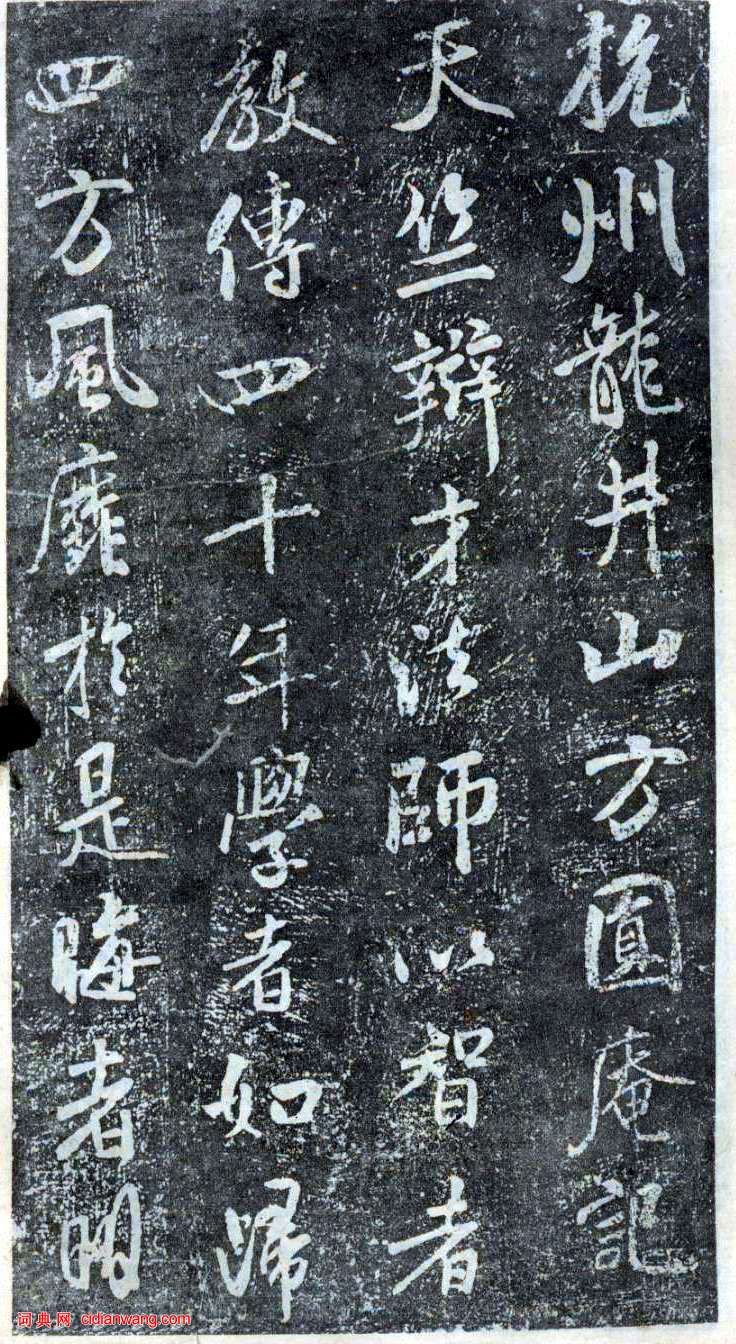 杭州龍井山方圓庵記
天竺辯才法師以智者
教傳四十年學者如歸
四方風靡於是晦者明
词典网 cidianwang.com